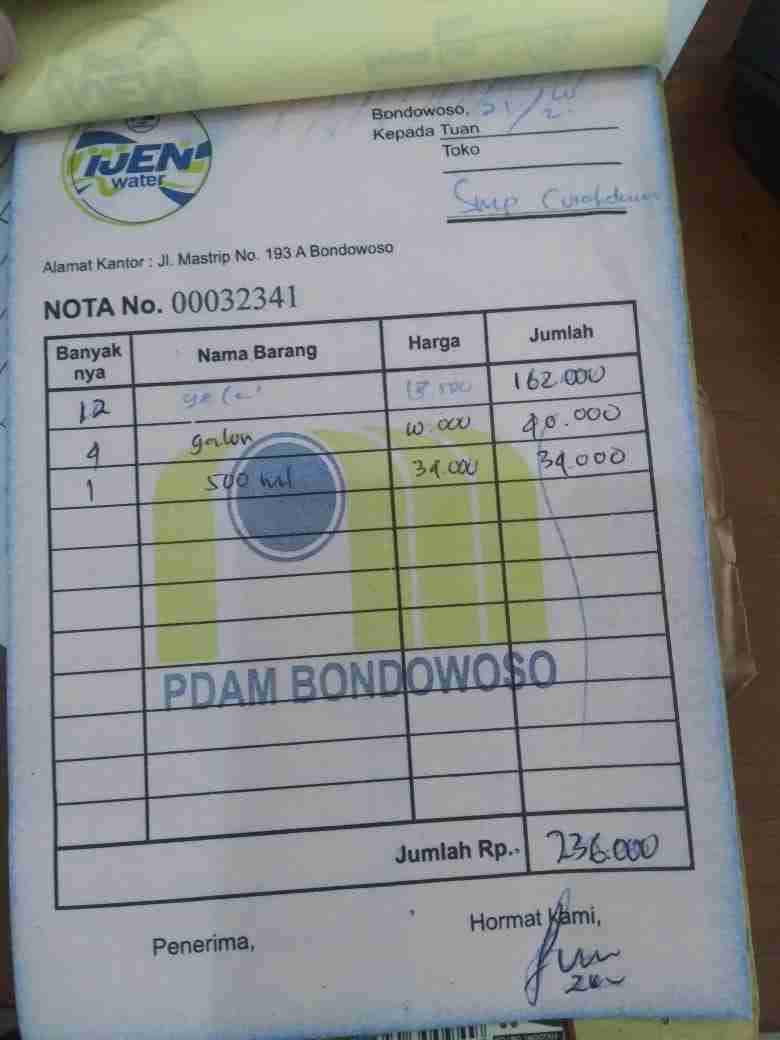 IJEN
water
Bondowoso, 21/10
2.
Kepada Tuan
Toko
Smp Curahdami
Alamat Kantor : Jl. Mastrip No. 193 A Bondowoso
NOTA No. 00032341
Banyak nya Nama Barang Harga Jumlah
12 13.500 162.000
4 galon 10.000 40.000
1 500 ml 34.000 34.000
PDAM BONDOWOSO
Jumlah Rp. 236.000
Penerima,
Hormat kami,